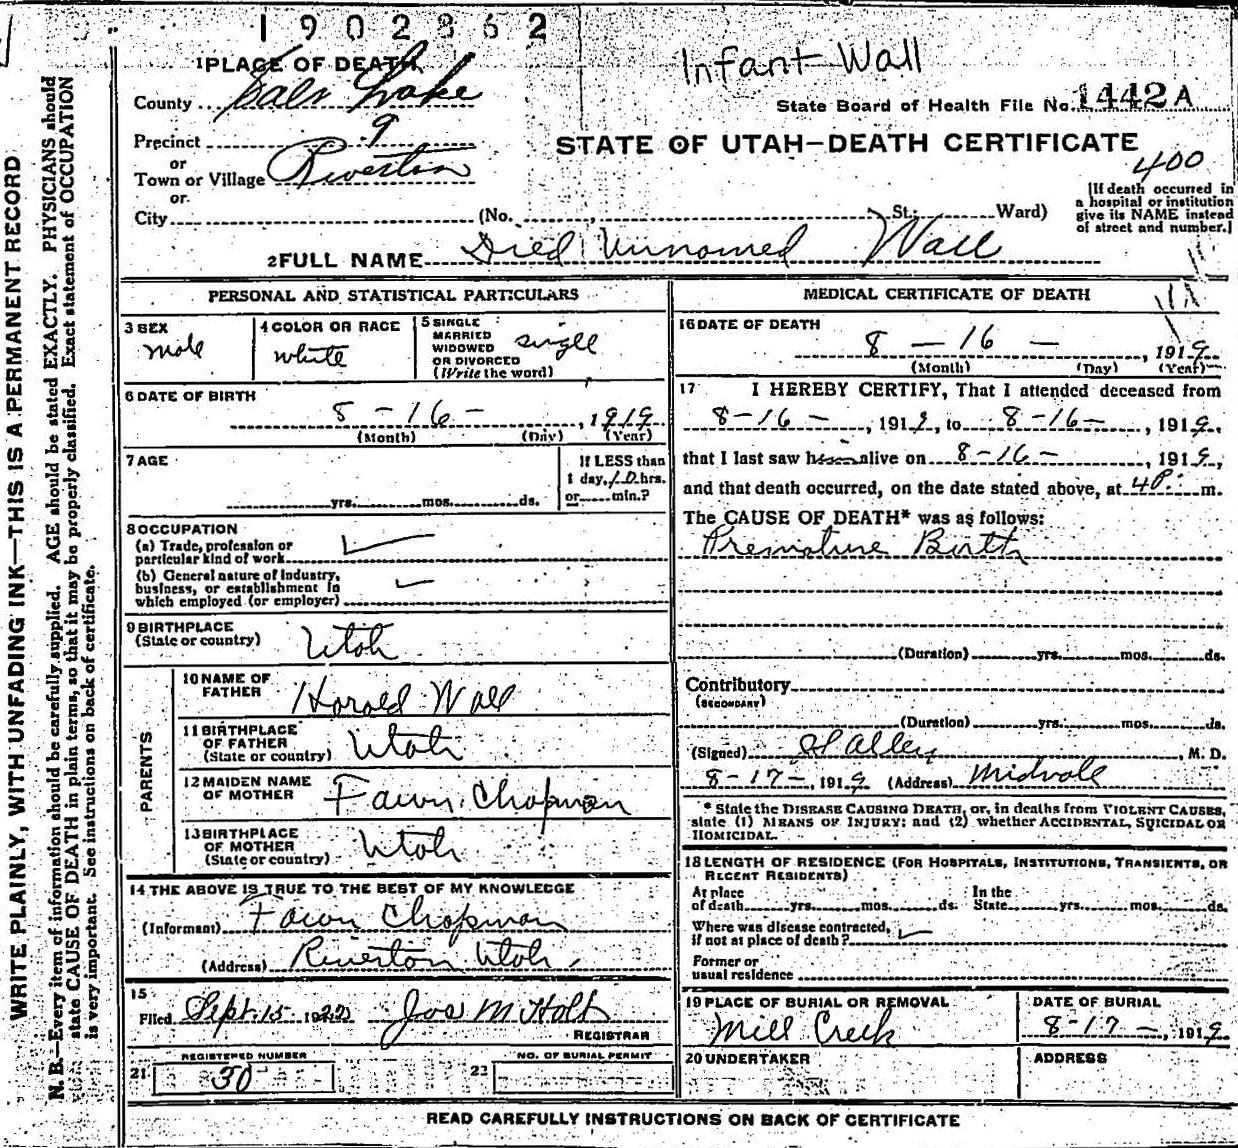 1902862
Infant Wall
1 PLACE OF DEATH
County Salt Lake
State Board of Health File No. 1442A
Precinct 9
STATE OF UTAH—DEATH CERTIFICATE
or
400
Town or Village Riverton
or
City (No. , St.; Ward)
[If death occurred in a hospital or institution give its NAME instead of street and number.]
2 FULL NAME Died Unnamed Wall
PERSONAL AND STATISTICAL PARTICULARS
3 SEX male
4 COLOR OR RACE white
5 SINGLE MARRIED WIDOWED OR DIVORCED (Write the word) single
6 DATE OF BIRTH 8-16-, 1919
(Month) (Day) (Year)
7 AGE
yrs. mos. ds.
If LESS than
1 day, 10 hrs.
or min.?
8 OCCUPATION
(a) Trade, profession or
particular kind of work
(b) General nature of industry,
business, or establishment in
which employed (or employer)
9 BIRTHPLACE
(State or country) Utah
PARENTS
10 NAME OF
FATHER Harold Wall
11 BIRTHPLACE
OF FATHER
(State or country) Utah
12 MAIDEN NAME
OF MOTHER Fawn Chapman
13 BIRTHPLACE
OF MOTHER
(State or country) Utah
14 THE ABOVE IS TRUE TO THE BEST OF MY KNOWLEDGE
(Informant) Fawn Chapman
(Address) Riverton Utah.
15
Filed Sept. 15 1922 Jos M Holt
REGISTRAR
REGISTERED NUMBER
21 30
NO. OF BURIAL PERMIT
22
MEDICAL CERTIFICATE OF DEATH
16 DATE OF DEATH
8 - 16 - , 1919
(Month) (Day) (Year)
17 I HEREBY CERTIFY, That I attended deceased from
8-16-, 1919, to 8-16-, 1919,
that I last saw him alive on 8-16-, 1919,
and that death occurred, on the date stated above, at 4P. m.
The CAUSE OF DEATH* was as follows:
Premature Birth
(Duration) yrs. mos. ds.
Contributory
(SECONDARY)
(Duration) yrs. mos. ds.
(Signed) Alley, M. D.
8-17-, 1919 (Address) Midvale
* State the DISEASE CAUSING DEATH, or, in deaths from VIOLENT CAUSES,
state (1) MEANS OF INJURY; and (2) whether ACCIDENTAL, SUICIDAL OR
HOMICIDAL.
18 LENGTH OF RESIDENCE (FOR HOSPITALS, INSTITUTIONS, TRANSIENTS, OR
RECENT RESIDENTS)
At place of death yrs. mos. ds. In the State yrs. mos. ds.
Where was disease contracted,
if not at place of death?
Former or
usual residence
19 PLACE OF BURIAL OR REMOVAL
Mill Creek
DATE OF BURIAL
8-17-, 1919
20 UNDERTAKER
ADDRESS
READ CAREFULLY INSTRUCTIONS ON BACK OF CERTIFICATE
WRITE PLAINLY, WITH UNFADING INK—THIS IS A PERMANENT RECORD
N. B.—Every item of information should be carefully supplied. AGE should be stated EXACTLY. PHYSICIANS should
state CAUSE OF DEATH in plain terms, so that it may be properly classified. Exact statement of OCCUPATION
is very important. See instructions on back of certificate.